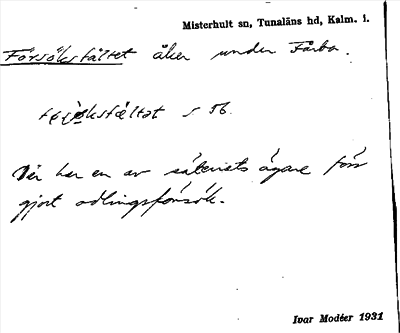 Misterhult sn, Tunaläns hd, Kalm. l.
Försöksfältet åker under Fårbo.
s 56.
Där har en av säteriets ägare förr
gjort odlingsförsök.
Ivar Modéer 1931